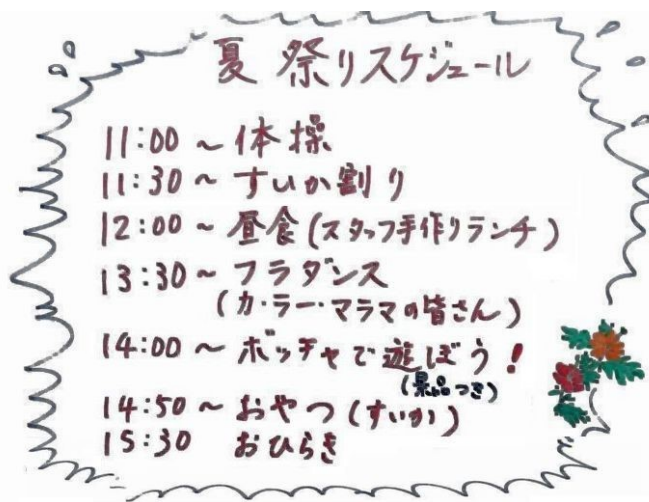 夏祭りスケジュール
11:00～体操
11:30～すいか割り
12:00～昼食(スタッフ手作りランチ)
13:30～フラダンス
(カ・ラー・マラマの皆さん)
14:00～ボッチャで遊ぼう!
(景品つき)
14:50～おやつ(すいか)
15:30 おひらき